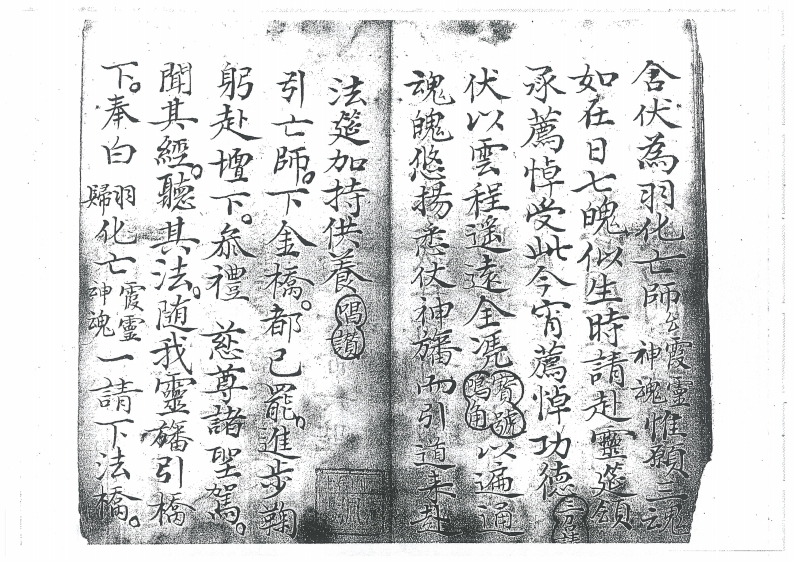 含伏為羽化亡師公霞靈神魂惟願三魂
如在日七魄似生時請赴靈筵領
承薦悼受此今宵薦悼功德三召請
伏以雲程遙遠全憑寶號鳴角以遍通
魂魄悠揚悉仗神旛而引道来赴
法筵加持供養鳴道
引亡師。下金橋。都已罷。進步鞠
躬赴壇下。叅禮慈尊諸聖駕。
聞其經。聽其法。随我靈旛引橋
下。奉白羽歸化亡霞靈神魂一請下法橋。